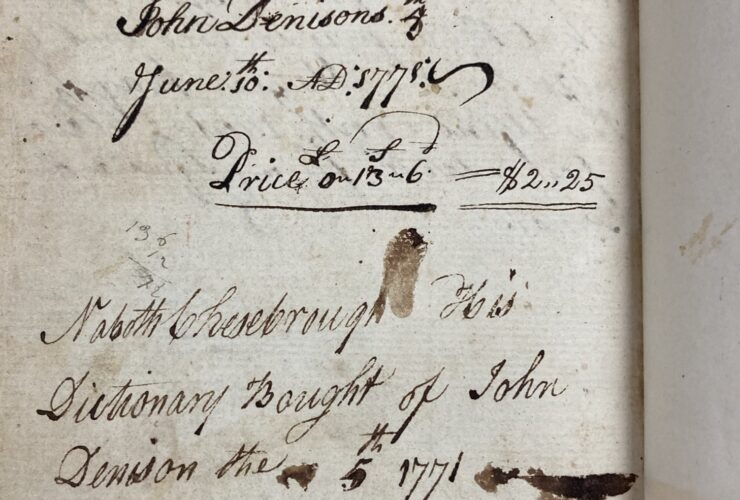 John Denisons.
June: 10th: AD: 1771:
£ s d
Price 0 " 13 " 6 = $2,,25
13 6
12
Naboth Chesebrough His
Dictionary Bought of John
Denison the 5th 1771